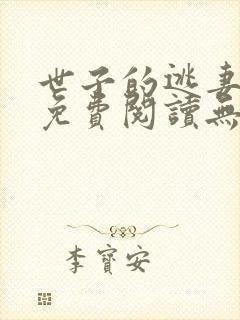 世子的逃妻
免費閱讀無
李寶安